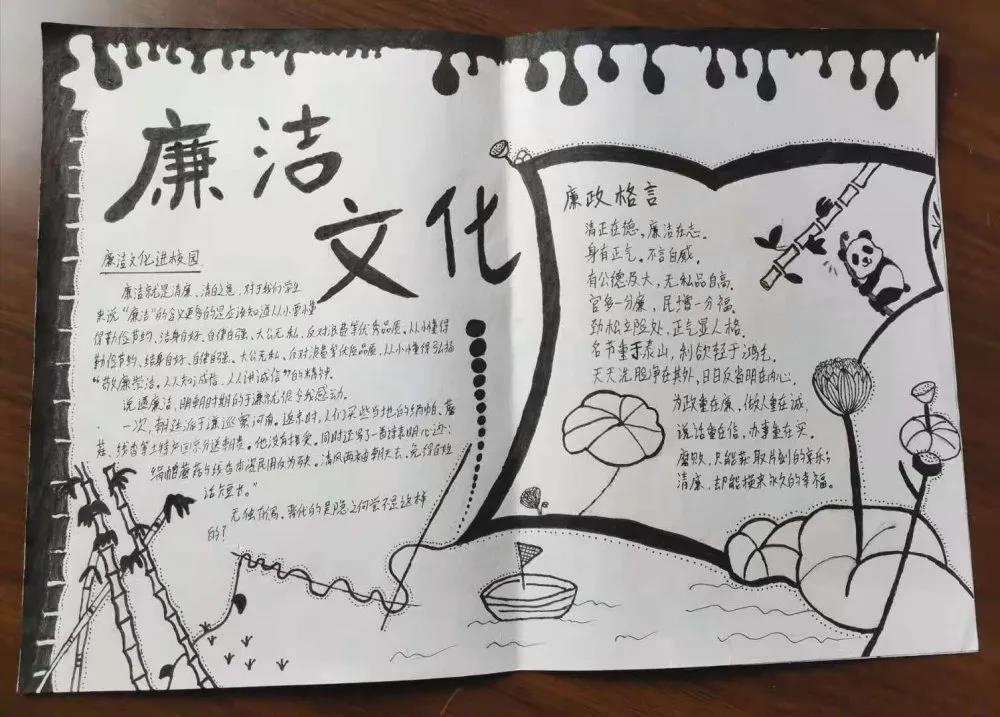 廉洁
文化
廉洁文化进校园
廉洁就是清廉、清白之意,对于我们学生
来说"廉洁"的含义更多的是应该知道从小要懂
得勤俭节约、洁身自好、自律自强、大公无私、反对浪费等优秀品质。从小懂得
勤俭节约、结身自好、自律自强、大公无私、反对浪费等优质品质,从小懂得弘扬
"敬廉崇洁,人人知诚信,人人讲诚信"的精神。
说道廉洁,明朝时期的于谦就很令我感动。
一次,朝廷派于谦巡察河南。返京时,人们买些当地的绢帕、蘑
菇、线香等土特产回京分送朝贵。他没有接受。同时还写了一首诗表明心迹:
绢帕蘑菇与线香本资民用反为殃。清风两袖朝天去,免得百姓
话短长。"
无独有偶。晋代的吴隐之何尝不是这样
的!
廉政格言
清正在德,廉洁在志。
身有正气。不言自威。
有公德乃大,无私品自高。
官多一分廉,民增一分福。
劲松立险处,正气显人格。
名节重于泰山,利欲轻于鸿毛。
天天洗脸净在其外,日日反省明在内心。
为政重在廉,做人重在诚,
说话重在信,办事重在实。
腐败,只能获取片刻的享乐;
清廉,却能换来永久的幸福。